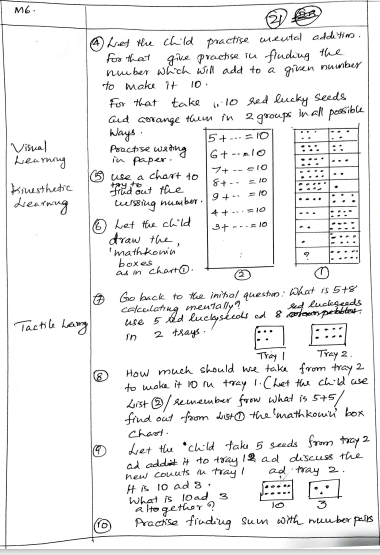 M6.
21
④ Let the child practise mental addition.
For that give practise in finding the
number which will add to a given number
to make it 10.
For that take 10 red lucky seeds
and arrange them in 2 groups in all possible
ways.
Visual
Learning
Practise writing
in paper.
5 + ... = 10
6 + ... = 10
7 + ... = 10
8 + ... = 10
9 + ... = 10
4 + ... = 10
3 + ... = 10
②
?
①
Kinesthetic
Learning
⑤ Use a chart to
find out the
missing number.
⑥ Let the child
draw the
'mathkowin'
boxes
as in chart ①.
⑦ Go back to the initial question: What is 5+8
calculating mentally?
Tactile Larng
use 5 red luckyseeds ad 8 red luckseeds
in 2 trays.
Tray 1
Tray 2.
⑧ How much should we take from tray 2
to make it 10 in tray 1. (Let the child use
List ② / remember from what is 5+5/
find out from List ① the 'mathkowin' box
chart.
⑨ Let the child take 5 seeds from tray 2
ad add it to tray 1 ad discuss the
new counts in tray 1 ad tray 2.
It is 10 ad 3.
What is 10 ad 3
altogether?
10
3
⑩ Practise finding sum with number pairs